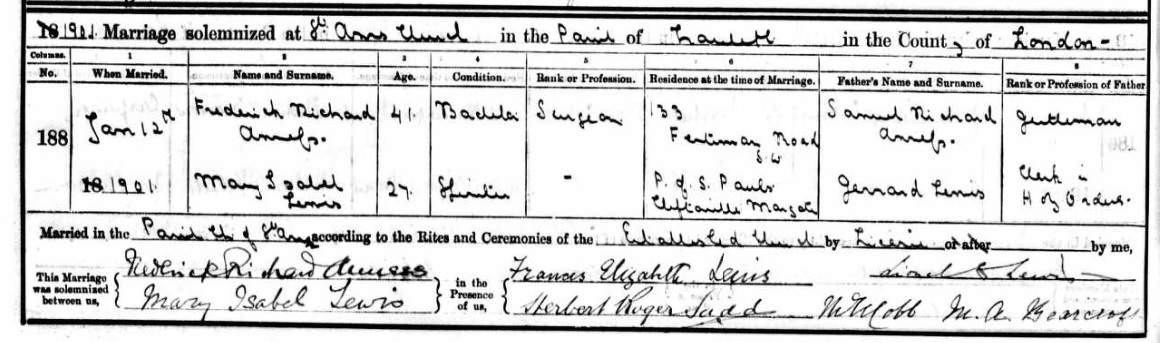 1901 Marriage solemnized at St. Anns Church in the Parish of Lambeth in the County of London
Columns. 1 2 3 4 5 6 7 8
No. When Married. Name and Surname. Age. Condition. Rank or Profession. Residence at the time of Marriage. Father's Name and Surname. Rank or Profession of Father
188 Jan 12th Frederick Richard 41. Bachelor Surgeon 133 Samuel Richard Gentleman
Anness. Fentiman Road Anness.
S.W
18 1901. Mary Isabel 27. Spinster - P. of S. Pauls Gerrard Lewis Clerk in
Lewis Cliftonville Margate Holy Orders.
Married in the Parish Ch of St Anne according to the Rites and Ceremonies of the Established Church by Licence or after by me,
This Marriage was solemnized between us,
Frederick Richard Anness
Mary Isabel Lewis
in the Presence of us,
Frances Elizabeth Lewis Lewis
Herbert Roger Cobb M. A. Bearcroft